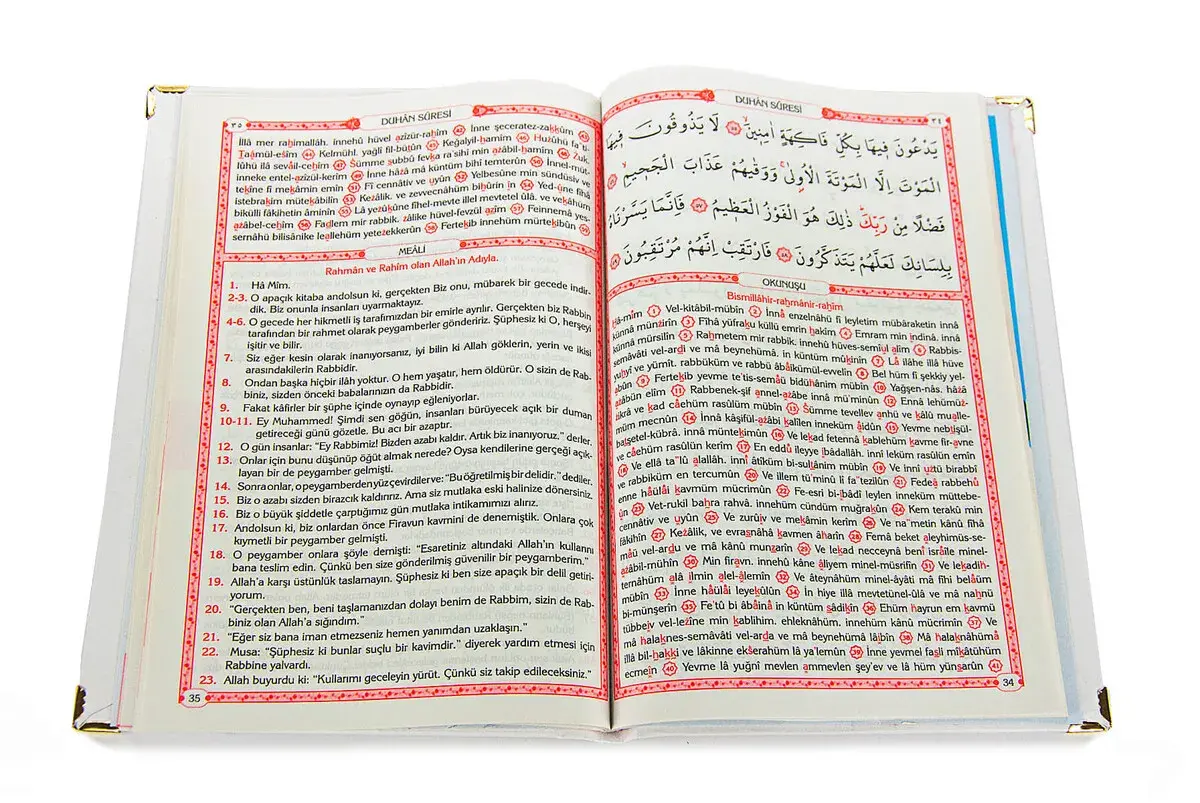 DUHÂN SÛRESİ
٣٤
يَدْعُونَ فِيهَا بِكُلِّ فَاكِهَةٍ اٰمِنِينَۙ ﴿٥٥﴾ لَا يَذُوقُونَ فِيهَا
الْمَوْتَ اِلَّا الْمَوْتَةَ الْاُولٰىۚ وَوَقٰيهُمْ عَذَابَ الْجَحِيمِۙ ﴿٥٦﴾
فَضْلًا مِنْ رَبِّكَۜ ذٰلِكَ هُوَ الْفَوْزُ الْعَظِيمُ ﴿٥٧﴾ فَاِنَّمَا يَسَّرْنَاهُ
بِلِسَانِكَ لَعَلَّهُمْ يَتَذَكَّرُونَ ﴿٥٨﴾ فَارْتَقِبْ اِنَّهُمْ مُرْتَقِبُونَ ﴿٥٩﴾
OKUNUŞU
Bismillâhir-rahmânir-rahîm
Hâ-mîm (1) Vel-kitâbil-mübîn (2) İnnâ enzelnâhü fî leyletim mübâraketin innâ
künnâ münzirîn (3) Fîhâ yüfraku küllü emrin hakîm (4) Emram min indinâ. innâ
künnâ mürsilîn (5) Rahmetem mir rabbik. innehû hüves-semîul alîm (6) Rabbis-
semâvâti vel-ardi ve mâ beynehümâ. in küntüm mûkinîn (7) Lâ ilâhe illâ hüve
yuhyî ve yümît. rabbüküm ve rabbü âbâikümül-evvelîn (8) Bel hüm fî şekkiy yel-
abûn (9) Fertekib yevme te'tis-semâü bidühânim mübîn (10) Yağşen-nâs. hâzâ
azâbün elîm (11) Rabbenek-şif annel-azâbe innâ mü'minûn (12) Ennâ lehümüz-
zikrâ ve kad câehüm rasûlüm mübîn (13) Sümme tevellev anhü ve kâlû mualle-
müm mecnûn (14) İnnâ kâşifül-azâbi kalîlen inneküm âidûn (15) Yevme nebtişül-
batşetel-kübrâ. innâ müntekimûn (16) Ve lekad fetennâ kablehüm kavme fir-avne
ve câehüm rasûlün kerîm (17) En eddû ileyye ıbâdallah. innî leküm rasûlün emîn
(18) Ve ellâ ta''lû alallah. innî âtîküm bi-sultânim mübîn (19) Ve innî uztü birabbî
ve rabbiküm en tercumûn (20) Ve illem tü'minû lî fa''tezilûn (21) Fedeâ rabbehû
enne hâülâi kavmüm mücrimûn (22) Fe-esri bi-ıbâdî leylen inneküm müttebe-
ûn (23) Vet-rukil bahra rahvâ. innehüm cündüm muğrakûn (24) Kem terakû min
cennâtiv ve uyûn (25) Ve zurûıv ve mekâmin kerîm (26) Ve na''metin kânû fîhâ
fâkihîn (27) Kezâlik, ve evrasnâhâ kavmen âharîn (28) Femâ beket aleyhimüs-se-
mâü vel-ardu ve mâ kânû munzarîn (29) Ve lekad necceynâ benî isrâîle minel-
azâbil-mühîn (30) Min firavn. innehû kâne âliyem minel-müsrifîn (31) Ve lekadih-
ternâhüm alâ ılmin alel-âlemîn (32) Ve âteynâhüm minel-âyâti mâ fîhi belâüm
mübîn (33) İnne hâülâi leyekûlûn (34) İn hiye illâ mevtetünel-ûlâ ve mâ nahnü
bi-münşerîn (35) Fe'tû bi âbâinâ in küntüm sâdikîn (36) Ehüm hayrun em kavmü
tübbeiv vel-lezîne min kablihim. ehleknâhüm. innehüm kânû mücrimîn (37) Ve
mâ halaknes-semâvâti vel-arda ve mâ beynehümâ lâıbîn (38) Mâ halaknâhümâ
illâ bil-hakki ve lâkinne ekserahüm lâ ya'lemûn (39) İnne yevmel fasli mîkâtühüm
ecmeîn (40) Yevme lâ yuğnî mevlen ammevlen şey'ev ve lâ hüm yünsarûn (41)
34
٣٥
DUHÂN SÛRESİ
İllâ mer rahimallâh. innehû hüvel azîzür-rahîm (42) İnne şeceratez-zakkûm (43)
Taâmül-esîm (44) Kelmühl. yağlî fil-bütûn (45) Keğalyil-hamîm (46) Huzûhü fa'ti-
lûhü ilâ sevâil-cehîm (47) Sümme subbû fevka ra'sihî min azâbil-hamîm (48) Zuk.
inneke entel-azîzül-kerîm (49) İnne hâzâ mâ küntüm bihî temterûn (50) İnnel-müt-
tekîne fî mekâmin emîn (51) Fî cennâtiv ve uyûn (52) Yelbesûne min sündüsiv ve
istebrakım mütekâbilîn (53) Kezâlik. ve zevvecnâhüm bihûrin în (54) Yed-ûne fîhâ
bikülli fâkihetin âminîn (55) Lâ yezûkûne fîhel-mevte illel mevtetel ûlâ. ve vekâhüm
azâbel-cehîm (56) Fadlem mir rabbik. zâlike hüvel-fevzül azîm (57) Feinnemâ yes-
sernâhü bilisânike leallehüm yetezekkerûn (58) Fertekıb innehüm mürtekıbûn (59)
MEÂLİ
Rahmân ve Rahîm olan Allah'ın Adıyla.
1. Hâ Mîm.
2-3. O apaçık kitaba andolsun ki, gerçekten Biz onu, mübarek bir gecede indir-
dik. Biz onunla insanları uyarmaktayız.
4-6. O gecede her hikmetli iş tarafımızdan bir emirle ayrılır. Gerçekten biz Rabbin
tarafından bir rahmet olarak peygamberler göndeririz. Şüphesiz ki O, herşeyi
işitir ve bilir.
7. Siz eğer kesin olarak inanıyorsanız, iyi bilin ki Allah göklerin, yerin ve ikisi
arasındakilerin Rabbidir.
8. Ondan başka hiçbir ilâh yoktur. O hem yaşatır, hem öldürür. O sizin de Rab-
biniz, sizden önceki babalarınızın da Rabbidir.
9. Fakat kâfirler bir şüphe içinde oynayıp eğleniyorlar.
10-11. Ey Muhammed! Şimdi sen göğün, insanları bürüyecek açık bir duman
getireceği günü gözetle. Bu acı bir azaptır.
12. O gün insanlar: “Ey Rabbimiz! Bizden azabı kaldır. Artık biz inanıyoruz.” derler.
13. Onlar için bunu düşünüp öğüt almak nerede? Oysa kendilerine gerçeği açık-
layan bir de peygamber gelmişti.
14. Sonra onlar, o peygamberden yüz çevirdiler ve: “Bu öğretilmiş bir delidir.” dediler.
15. Biz o azabı sizden birazcık kaldırırız. Ama siz mutlaka eski halinize dönersiniz.
16. Biz o büyük şiddetle çarptığımız gün mutlaka intikamımızı alırız.
17. Andolsun ki, biz onlardan önce Firavun kavmini de denemiştik. Onlara çok
kıymetli bir peygamber gelmişti.
18. O peygamber onlara şöyle demişti: “Esaretiniz altındaki Allah'ın kullarını
bana teslim edin. Çünkü ben size gönderilmiş güvenilir bir peygamberim.”
19. Allah'a karşı üstünlük taslamayın. Şüphesiz ki ben size apaçık bir delil getiri-
yorum.
20. “Gerçekten ben, beni taşlamanızdan dolayı benim de Rabbim, sizin de Rab-
biniz olan Allah'a sığındım.”
21. “Eğer siz bana iman etmezseniz hemen yanımdan uzaklaşın.”
22. Musa: “Şüphesiz ki bunlar suçlu bir kavimdir.” diyerek yardım etmesi için
Rabbine yalvardı.
23. Allah buyurdu ki: “Kullarımı geceleyin yürüt. Çünkü siz takip edileceksiniz.”
35